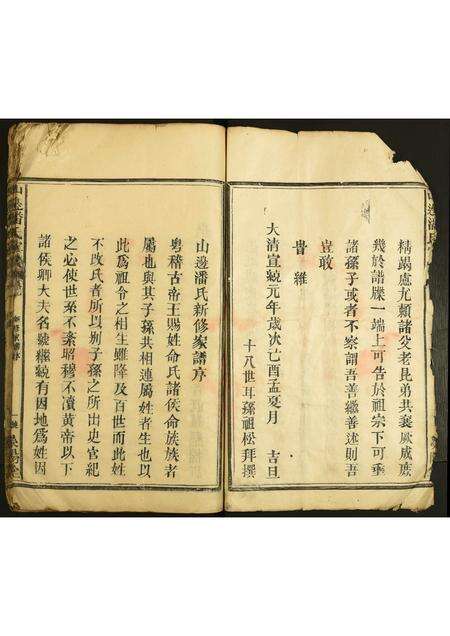 精竭慮尤賴諸父老昆弟共襄厥成庶
幾於譜牒一端上可告於祖宗下可垂
諸孫子或者不察謂吾善繼善述則吾
豈敢
旹維
大清宣統元年歲次己酉孟夏月 吉旦
十八世耳孫祖松拜撰
山邊潘氏新修家譜序
粵稽古帝王賜姓命氏諸侯命族族者
屬也與其子孫共相連屬姓者生也以
此爲祖令之相生雖降及百世而此姓
不改氏者所以別子孫之所出史官紀
之必使世系不紊昭穆不瀆黃帝以下
諸侯卿大夫名號繼統有因地爲姓因
山邊潘氏